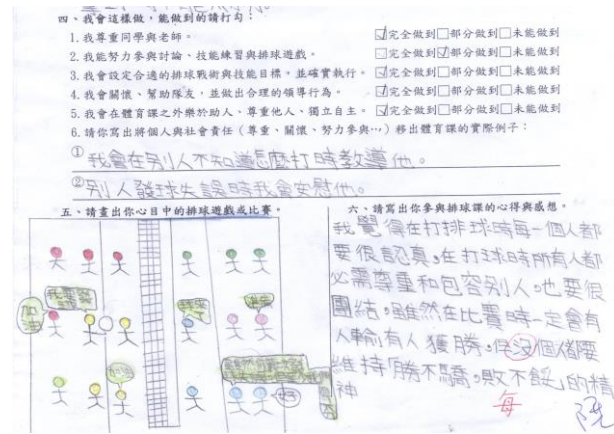 四、我會這樣做,能做到的請打勾:
1.我尊重同學與老師。 ☑完全做到□部分做到□未能做到
2.我能努力參與討論、技能練習與排球遊戲。 □完全做到☑部分做到□未能做到
3.我會設定合適的排球戰術與技能目標。並確實執行。 ☑完全做到□部分做到□未能做到
4.我會關懷、幫助隊友,並做出合理的領導行為。 ☑完全做到□部分做到□未能做到
5.我會在體育課之外樂於助人、尊重他人、獨立自主。 ☑完全做到□部分做到□未能做到
6.請你寫出將個人與社會責任(尊重、關懷、努力參與…)移出體育課的實際例子:
①我會在別人不知道怎麼打時教導他。
②別人發球失誤時我會安慰他。
五、請畫出你心目中的排球遊戲或比賽。
加油
六、請寫出你參與排球課的心得與感想。
我覺得在打排球時每一個人都
要很認真。在打球時所有人都
必需尊重和包容別人。也要很
團結。雖然在比賽時一定會有
人輸有人獲勝。但沒個人都要
維持「勝不驕。敗不餒」的精
神
每